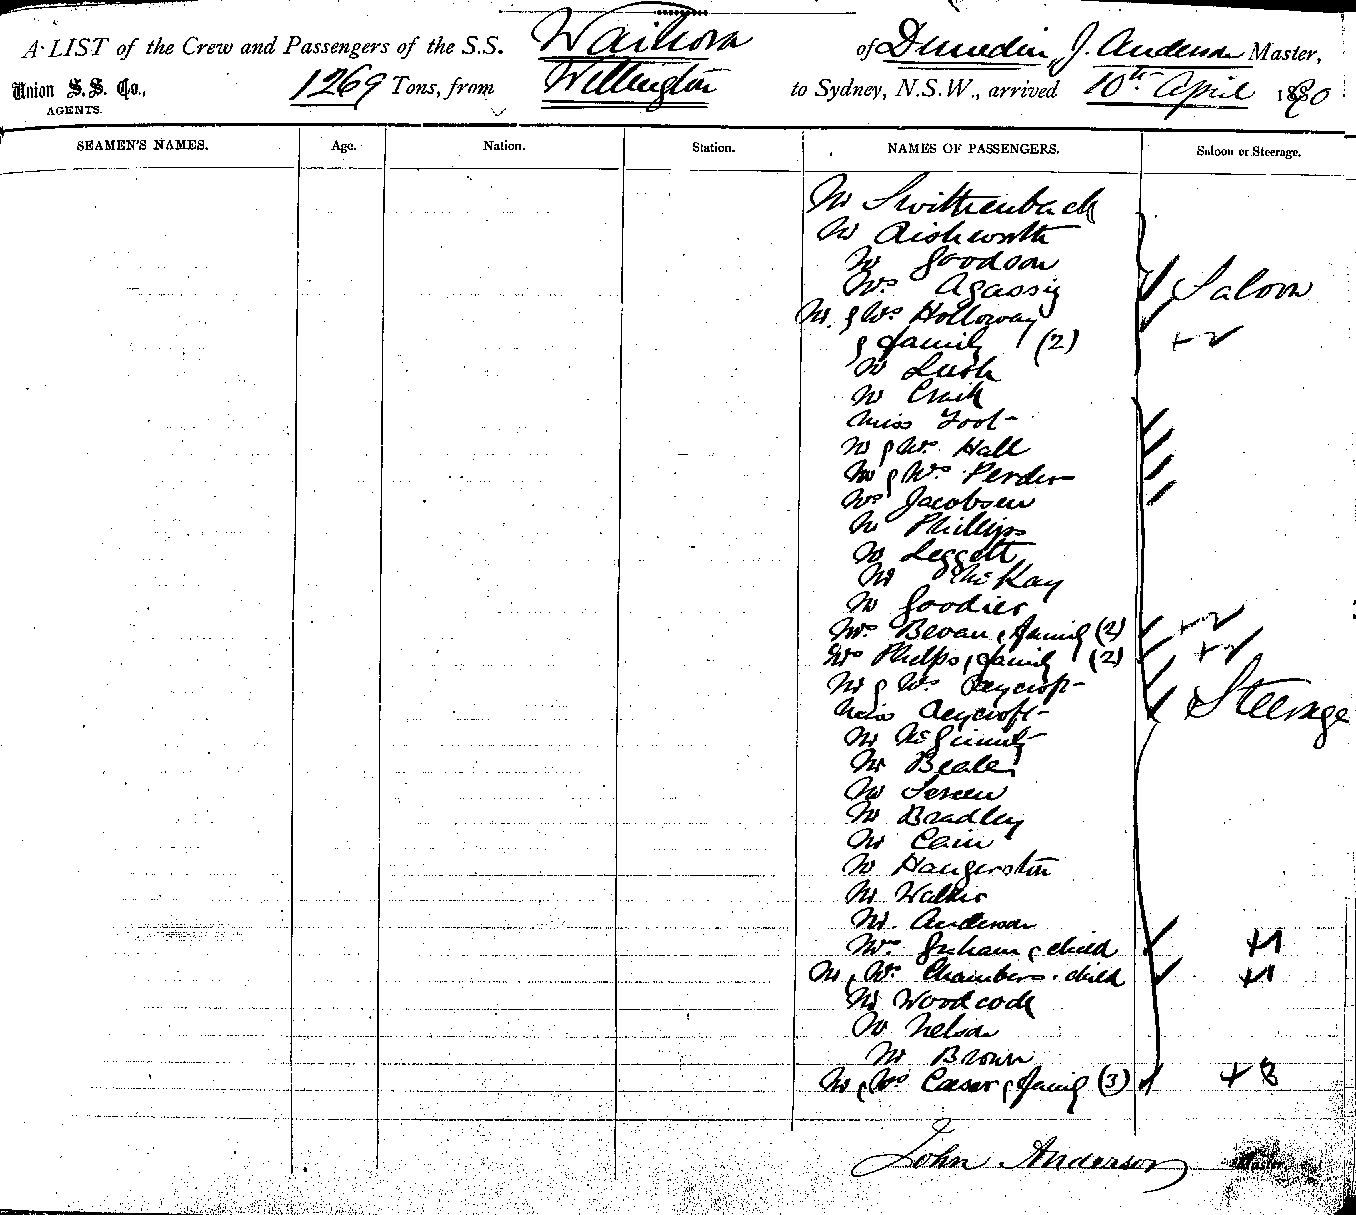 A LIST of the Crew and Passengers of the S.S. Waihora of Dunedin, J. Anderson Master,
Union S.S. Co., 1269 Tons, from Wellington to Sydney, N.S.W., arrived 10th April 1890
AGENTS.
SEAMEN'S NAMES. Age. Nation. Station. NAMES OF PASSENGERS. Saloon or Steerage.
Mr Swittenback
Mr Aishworth
Mr Goodson
Mrs Agassiz Saloon
Mr. & Mrs Holloway
& family (2) + 2
Mr Lush
Mr Craik
Miss Foot
Mr & Mrs Hall
Mr & Mrs Perder
Mrs Jacobsen
Mr Phillips
Mr Leggett
Mr McKay
Mr Goodier
Mrs Bevan & family (2) + 2
Mrs Phelps & family (2) + 2
Mr & Mrs Reycroft Steerage
Miss Reycroft
Mr McGinnity
Mr Beale
Mr
Mr Bradley
Mr Cain
Mr Haugerston
Mr Walker
Mr. Anderson
Mrs Graham & child +1
Mr & Mrs Chambers & child +1
Mr Woodcock
Mr Nelson
Mr Brown
Mr & Mrs Caesar & family (3) + 3
John Anderson Master